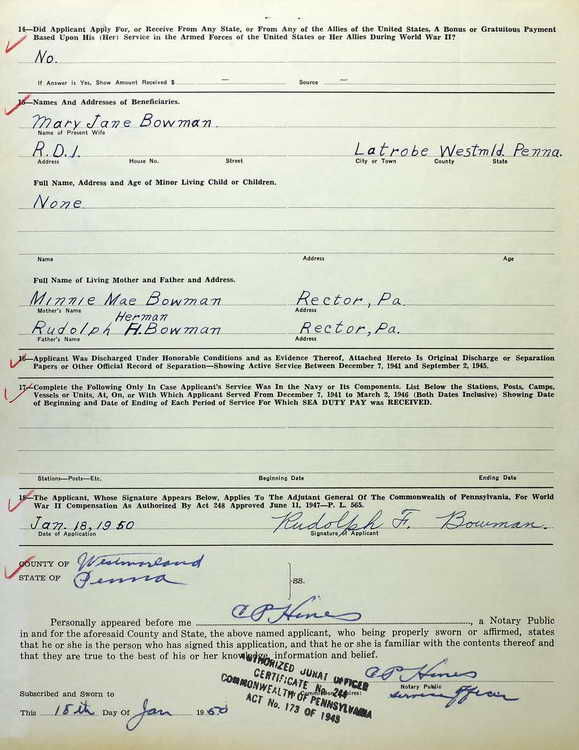 14—Did Applicant Apply For, or Receive From Any State, or From Any of the Allies of the United States, A Bonus or Gratuitous Payment
Based Upon His (Her) Service in the Armed Forces of the United States or Her Allies During World War II?
No.
If Answer is Yes, Show Amount Received $ — Source —
15—Names And Addresses of Beneficiaries.
Mary Jane Bowman
Name of Present Wife
R.D.1. Latrobe Westmld. Penna.
Address House No. Street City or Town County State
Full Name, Address and Age of Minor Living Child or Children.
None
Name Address Age
Full Name of Living Mother and Father and Address.
Minnie Mae Bowman Rector, Pa.
Mother's Name Address
Herman
Rudolph H. Bowman Rector, Pa.
Father's Name Address
16—Applicant Was Discharged Under Honorable Conditions and as Evidence Thereof, Attached Hereto Is Original Discharge or Separation
Papers or Other Official Record of Separation—Showing Active Service Between December 7, 1941 and September 2, 1945.
17—Complete the Following Only In Case Applicant's Service Was In the Navy or Its Components. List Below the Stations, Posts, Camps,
Vessels or Units, At, On, or With Which Applicant Served From December 7, 1941 to March 2, 1946 (Both Dates Inclusive) Showing Date
of Beginning and Date of Ending of Each Period of Service For Which SEA DUTY PAY was RECEIVED.
Stations—Posts—Etc. Beginning Date Ending Date
18—The Applicant, Whose Signature Appears Below, Applies To The Adjutant General Of The Commonwealth of Pennsylvania, For World
War II Compensation As Authorized By Act 248 Approved June 11, 1947—P. L. 565.
Jan. 18, 1950 Rudolph F. Bowman.
Date of Application Signature of Applicant
COUNTY OF Westmoreland
STATE OF Penna
SS.
Personally appeared before me C P Hines, a Notary Public
in and for the aforesaid County and State, the above named applicant, who being properly sworn or affirmed, states
that he or she is the person who has signed this application, and that he or she is familiar with the contents thereof and
that they are true to the best of his or her knowledge, information and belief.
C P Hines
Notary Public
Service Officer
AUTHORIZED JURAT OFFICER
CERTIFICATE No. 244
COMMONWEALTH OF PENNSYLVANIA
ACT No. 173 OF 1943
Subscribed and Sworn to
This 18th Day Of Jan 1950